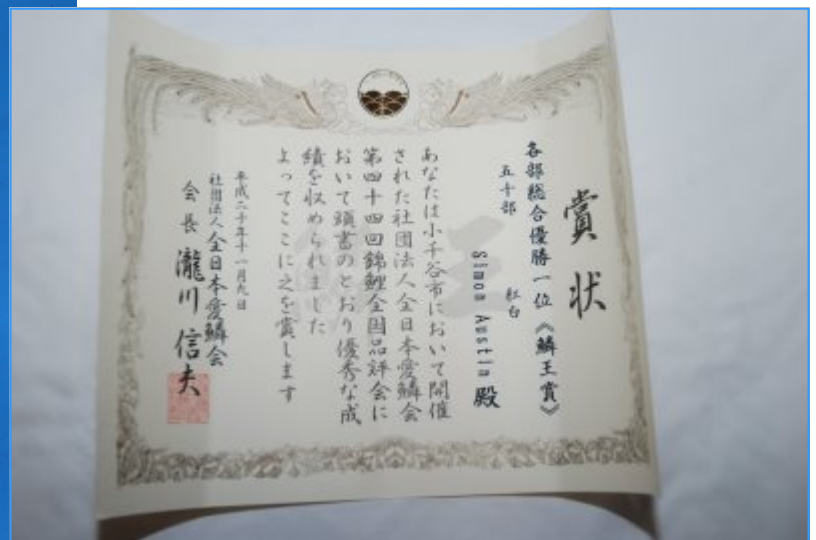 賞状
各部総合優勝一位《鱗王賞》
五十部
紅白
Simon Austin 殿
あなたは小千谷市において開催
された社団法人全日本愛鱗会
第四十四回錦鯉全国品評会に
おいて頭書のとおり優秀な成
績を収められました
よってここに之を賞します
平成二十年十一月九日
社団法人全日本愛鱗会
会長 瀧川信夫